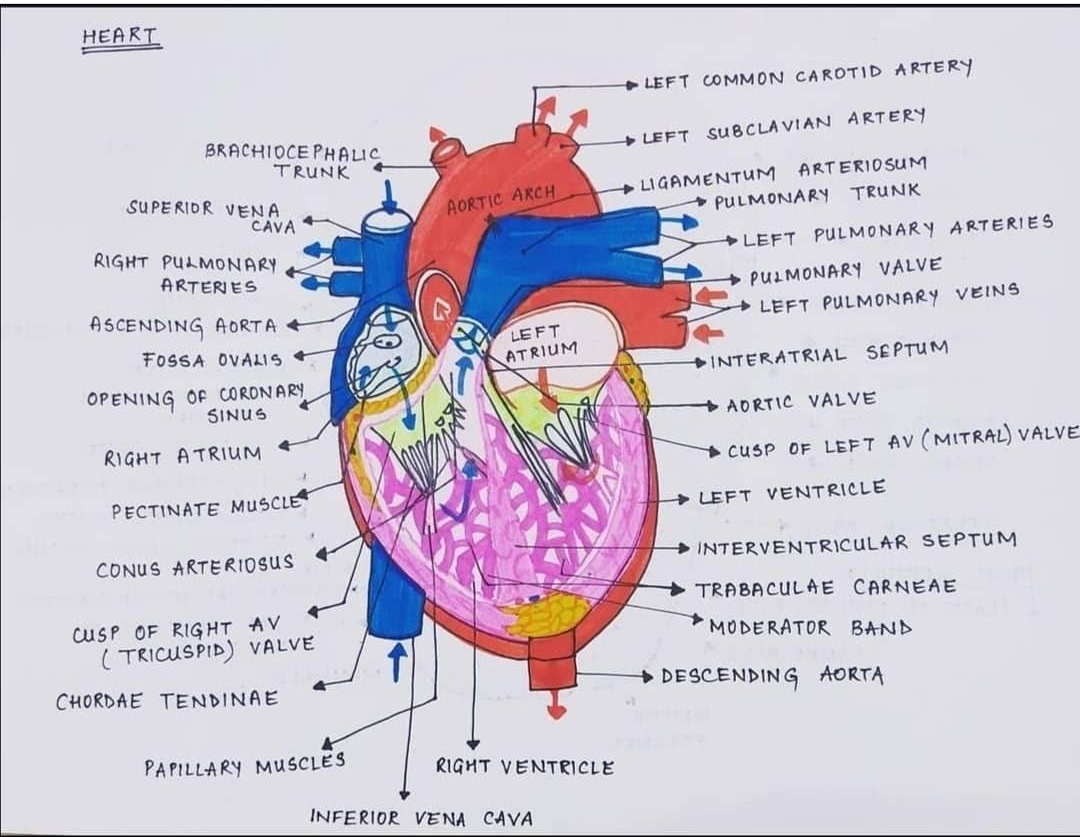 HEART
LEFT COMMON CAROTID ARTERY
LEFT SUBCLAVIAN ARTERY
BRACHIOCEPHALIC
TRUNK
LIGAMENTUM ARTERIOSUM
PULMONARY TRUNK
AORTIC ARCH
SUPERIOR VENA
CAVA
LEFT PULMONARY ARTERIES
RIGHT PULMONARY
ARTERIES
PULMONARY VALVE
LEFT PULMONARY VEINS
ASCENDING AORTA
LEFT
ATRIUM
FOSSA OVALIS
INTERATRIAL SEPTUM
OPENING OF CORONARY
SINUS
AORTIC VALVE
RIGHT ATRIUM
CUSP OF LEFT AV (MITRAL) VALVE
PECTINATE MUSCLE
LEFT VENTRICLE
CONUS ARTERIOSUS
INTERVENTRICULAR SEPTUM
TRABACULAE CARNEAE
CUSP OF RIGHT AV
(TRICUSPID) VALVE
MODERATOR BAND
CHORDAE TENDINAE
DESCENDING AORTA
PAPILLARY MUSCLES
RIGHT VENTRICLE
INFERIOR VENA CAVA